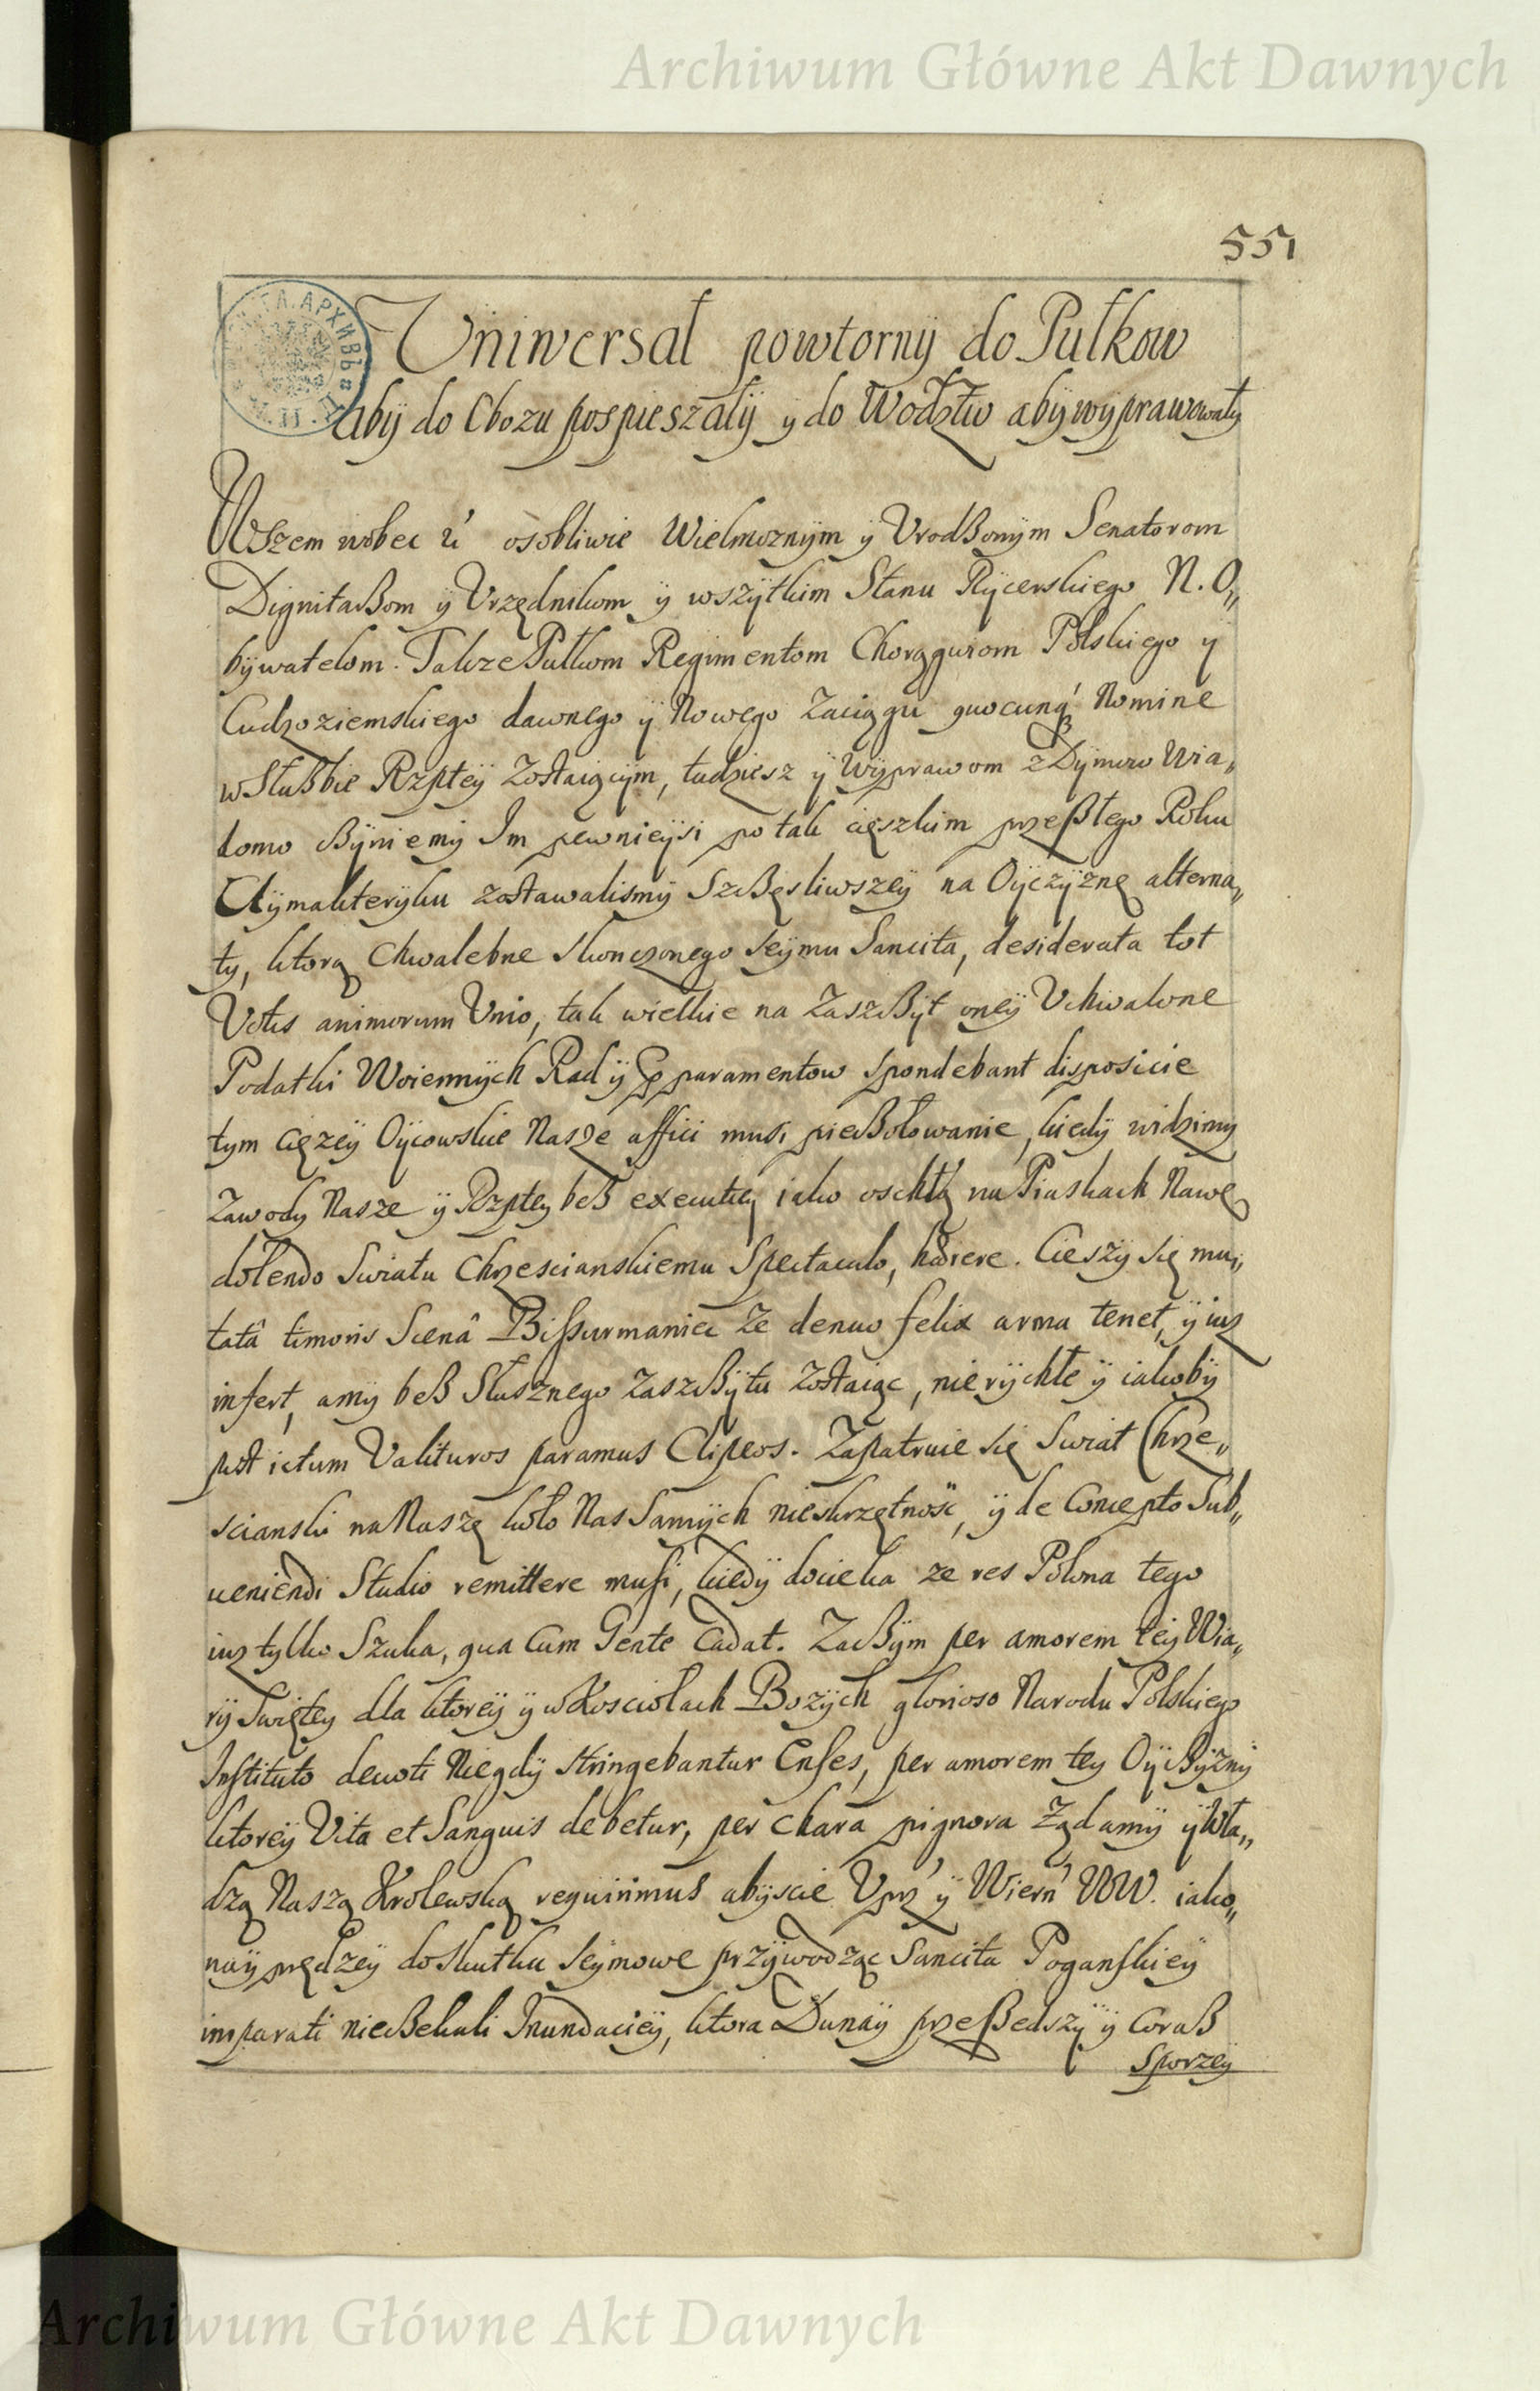 Archiwum Główne Akt Dawnych
551
Uniwersał powtorny do Pułkow
aby do Obozu pospieszały y do Wodztw aby wyprawowały
Wszem wobec u osobliwie Wielmoznym y Vrodßonym Senatorom
Dignitaßom y Vrzędnikom y wszytkim Stanu Rycerskiego N. O„
bywatelom. Takze Pułkom Regimentom Chorągwiom Polskiego y
Cudzoziemskiego dawnego y Nowego Zaciągu quocunq Nomine
w Słußbie Rzptey Zostaiącym, tudziesz y Wyprawom z Dymow Wia„
domo ßyniemy Im pewnieysi po tak cięszkim przeßłego Roku
Clymakteryku zostawalismy Szßęsliwszey na Oyczyznę alterna„
ty, ktorą Chwalebne skonczonego Seymu Sancita, desiderata tot
Votis animorum Vnio, tak wielkie na Zaszßyt oney Vchwalone
Podatki Woiennych Rad y Apparamentow spondebant disposicie
tym Cięzey Oycowskie Nasze affici musi pießołowanie, kiedy widzimy
Zawody Nasze y Rzptey beß executiey iako oschłą na Piaskach Nawę
dolendo Swiatu Chrzescianskiemu Spectaculo, hærere. Cieszy się mu„
tatâ timoris Scenâ Bissurmaniec Ze denuo felix arma tenet, y iuz
infert, a my beß Słusznego Zaszßytu Zostaiąc, nierychłe y iakoby
post ictum Valituros paramus Clipeos. Zapatruie się Swiat Chrze„
scianski na Naszę koło Nas Samych nieskrzętność, y de Concepto Sub„
ueniendi Studio remittere musi, kiedy docieka ze res Polona tego
iuz tylko Szuka, qua Cum Gente Cadat. Zaßym per amorem tey Wia„
ry Swiętey dla ktorey y w Kosciołach Bozych glorioso Narodu Polskiego
Instituto deuoti Niegdy stringebantur Enses, per amorem tey Oyßyzny
ktorey Vita et Sanguis debetur, per Chara pignora Ządamy y Wła„
dzą Naszą Krolewską requirimus abyscie Vprz y Wiern WW. iako„
nayprędzey do Skutku Seymowe przywodząc Sancita Poganskiey
imparati nießekali Inundaciey, ktora Dunay przeßedszy y Coraß
Sporzey
Archiwum Główne Akt Dawnych